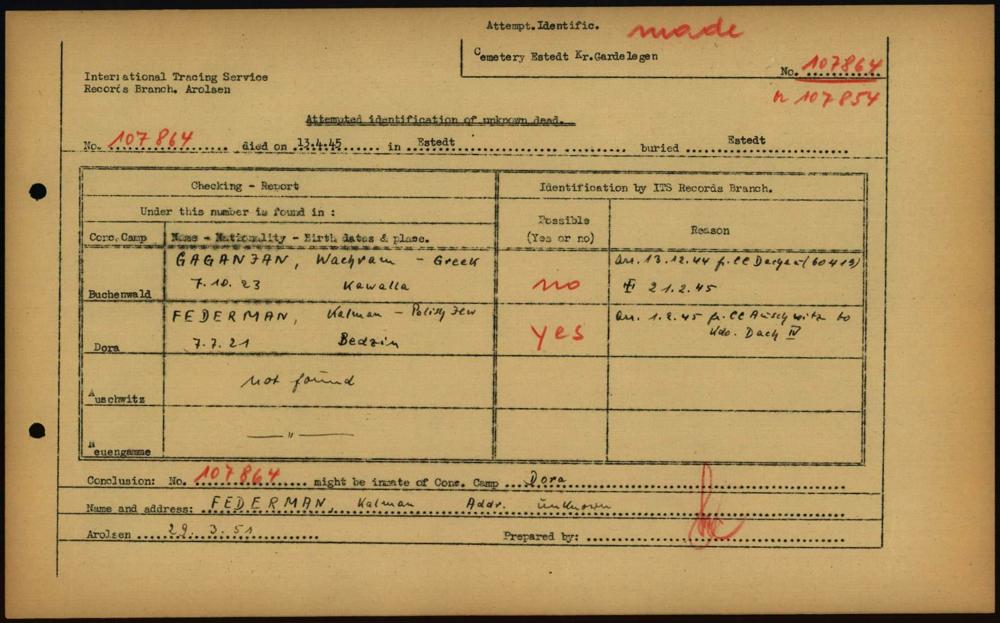 Attempt. Identific. made
Cemetery Estedt Kr. Gardelegen
No. 107864
107854
International Tracing Service
Records Branch. Arolsen
Attempted identification of unknown dead.
No. 107864 died on 13.4.45 in Estedt buried Estedt
Checking - Report
Identification by ITS Records Branch.
Under this number is found in :
Possible
(Yes or no)
Reason
Conc. Camp
Name - Nationality - Birth dates & place.
Buchenwald
GAGANJAN, Wachram - Greek
7.10.23 Kawalla
no
arr. 13.12.44 fr. CC Dachau (60419)
21.2.45
Dora
FEDERMAN, Kalman - Polish Jew
7.7.21 Bedzin
yes
arr. 1.2.45 fr. CC Auschwitz to
Kdo. Dach IV
Auschwitz
not found
Neuengamme
— " —
Conclusion: No. 107864 might be inmate of Conc. Camp Dora
Name and address: FEDERMAN, Kalman Addr. unknown
Arolsen 29.3.51 Prepared by: